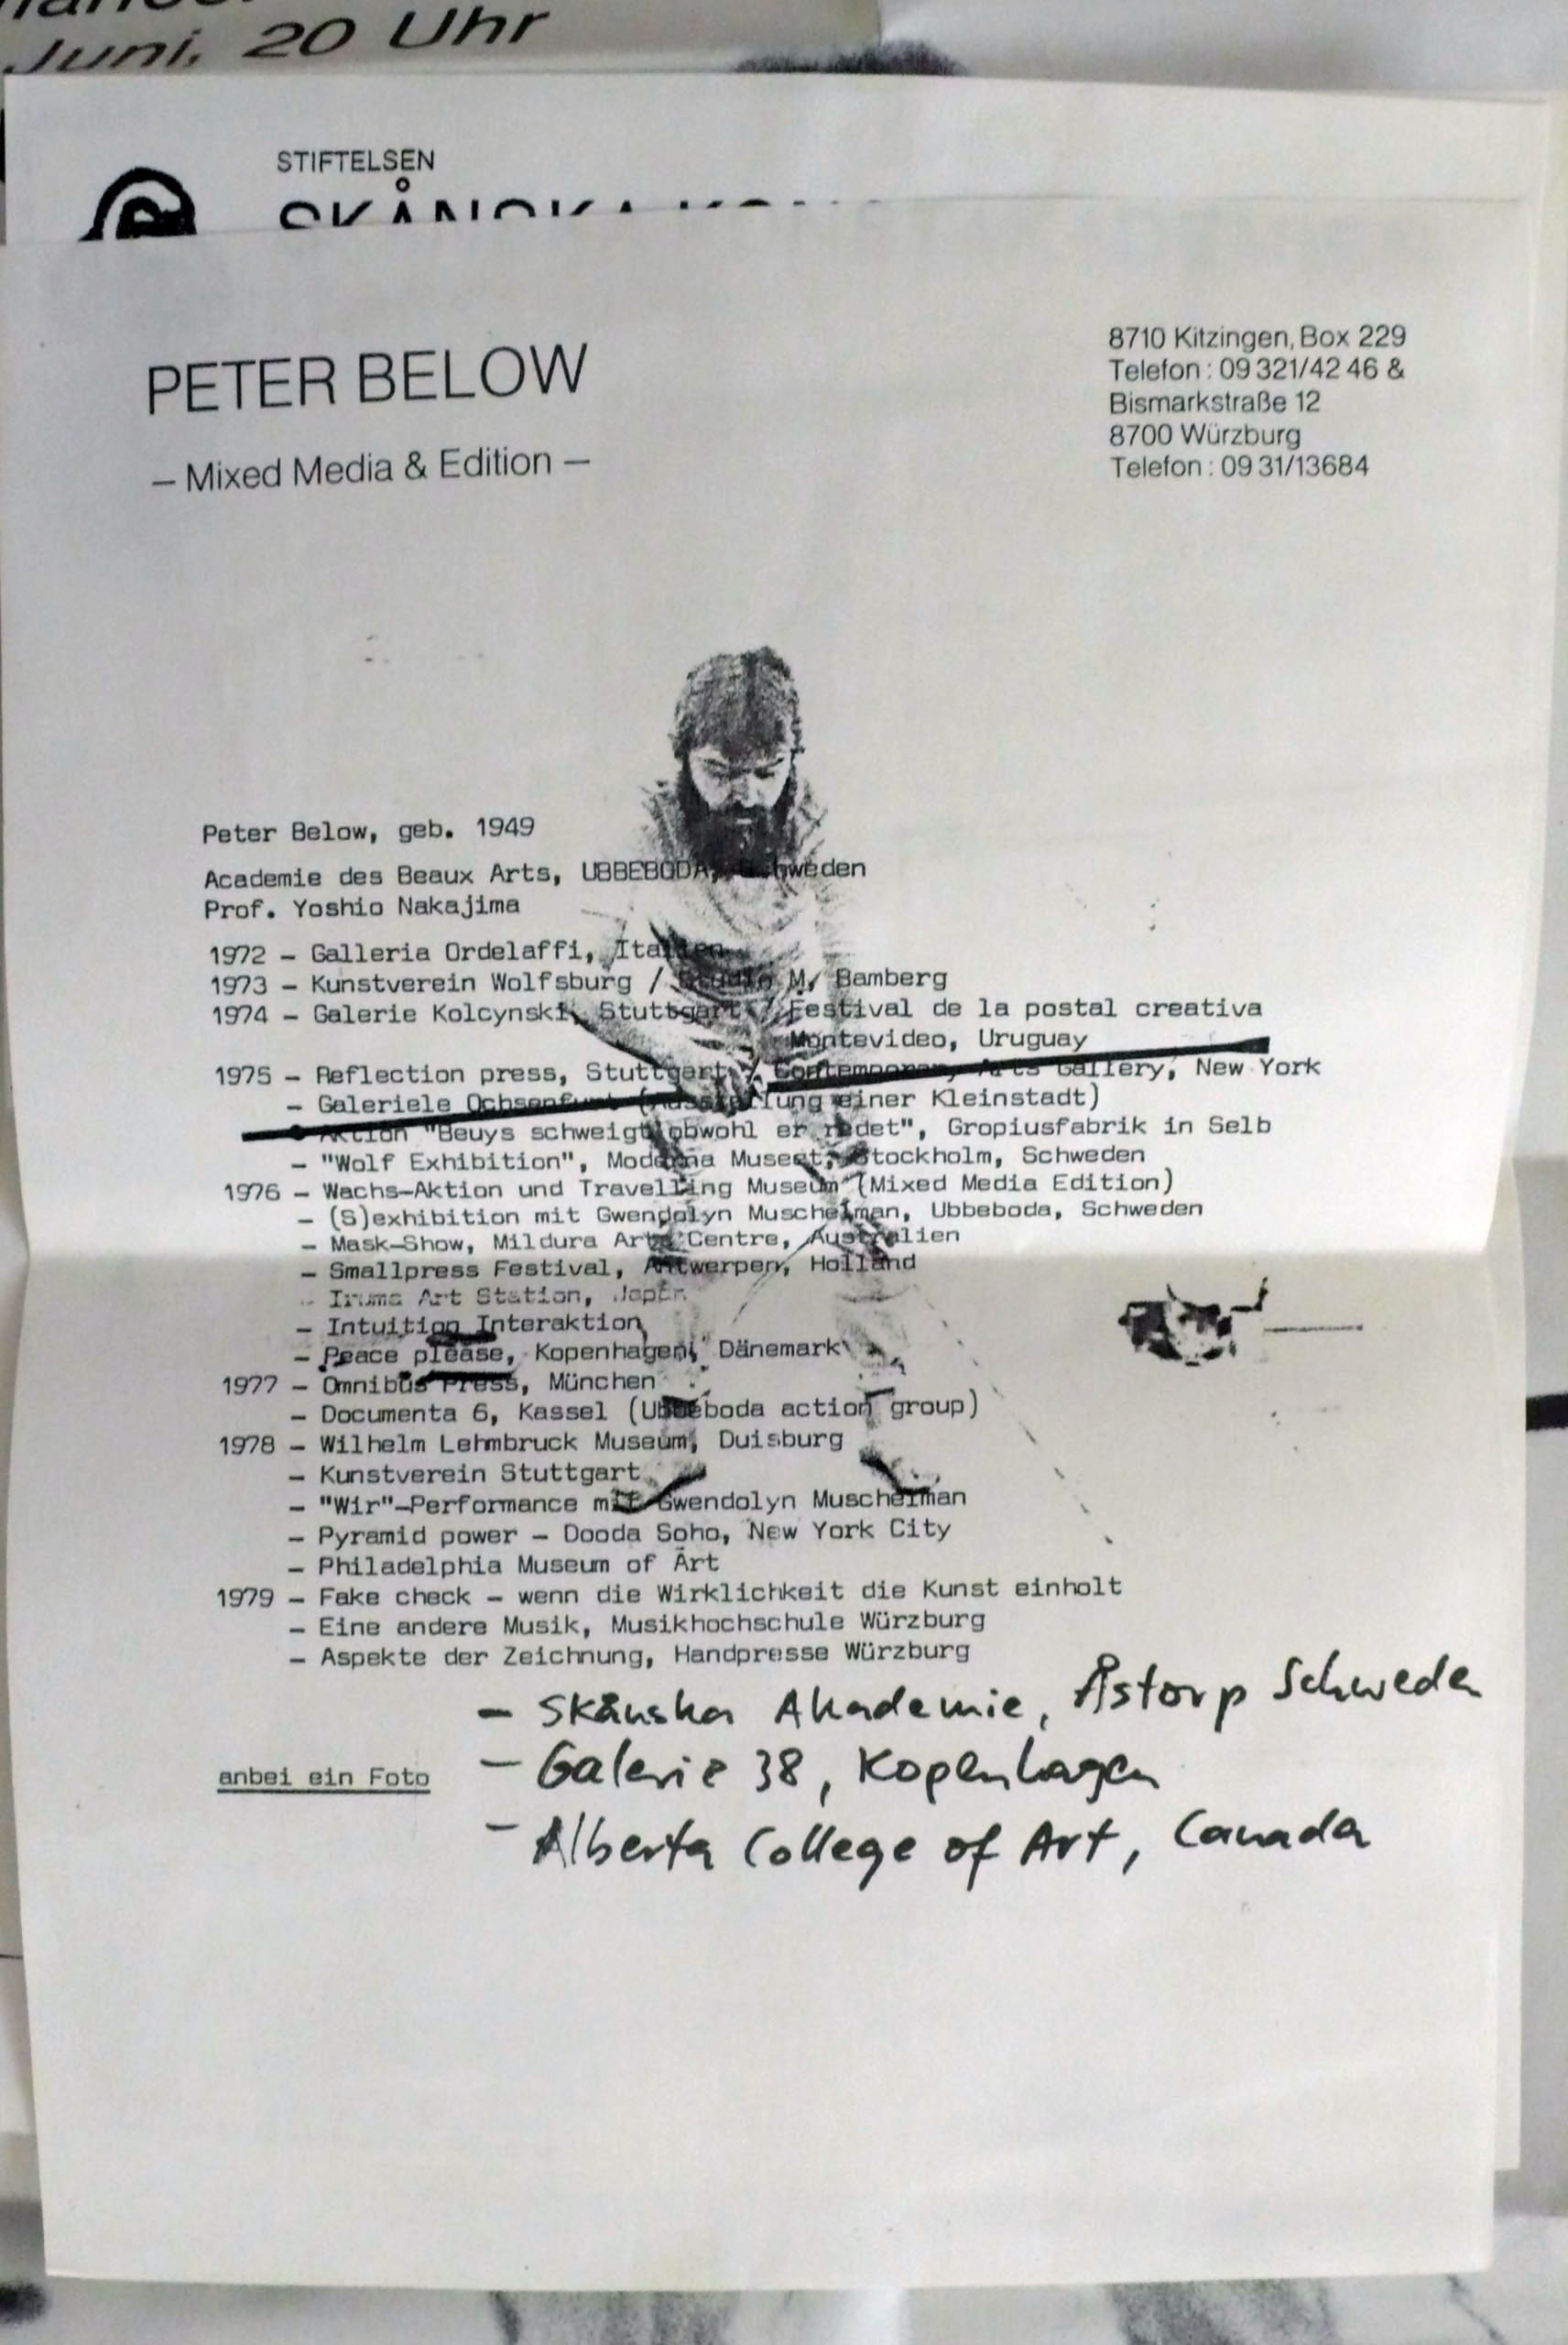 Juni, 20 Uhr
STIFTELSEN
SKÅNSKA
PETER BELOW
– Mixed Media & Edition –
8710 Kitzingen, Box 229
Telefon : 09 321/42 46 &
Bismarkstraße 12
8700 Würzburg
Telefon : 09 31/13684
Peter Below, geb. 1949
Academie des Beaux Arts, UBBEBODA, Schweden
Prof. Yoshio Nakajima
1972 – Galleria Ordelaffi, Italien
1973 – Kunstverein Wolfsburg / Studio M, Bamberg
1974 – Galerie Kolcynski, Stuttgart / Festival de la postal creativa
Montevideo, Uruguay
1975 – Reflection press, Stuttgart / Contemporary Arts Gallery, New York
– Galeriele Ochsenfurt (Ausstellung einer Kleinstadt)
– Aktion "Beuys schweigt obwohl er redet", Gropiusfabrik in Selb
– "Wolf Exhibition", Moderna Museet, Stockholm, Schweden
1976 – Wachs-Aktion und Travelling Museum (Mixed Media Edition)
– (S)exhibition mit Gwendolyn Muschelman, Ubbeboda, Schweden
– Mask-Show, Mildura Arts Centre, Australien
– Smallpress Festival, Antwerpen, Holland
– Iruma Art Station, Japan
– Intuition Interaktion
– Peace please, Kopenhagen, Dänemark
1977 – Omnibus Press, München
– Documenta 6, Kassel (Ubbeboda action group)
1978 – Wilhelm Lehmbruck Museum, Duisburg
– Kunstverein Stuttgart
– "Wir"-Performance mit Gwendolyn Muschelman
– Pyramid power – Dooda Soho, New York City
– Philadelphia Museum of Art
1979 – Fake check – wenn die Wirklichkeit die Kunst einholt
– Eine andere Musik, Musikhochschule Würzburg
– Aspekte der Zeichnung, Handpresse Würzburg
– Skånska Akademie, Åstorp Schweden
– Galerie 38, Kopenhagen
– Alberta College of Art, Canada
anbei ein Foto